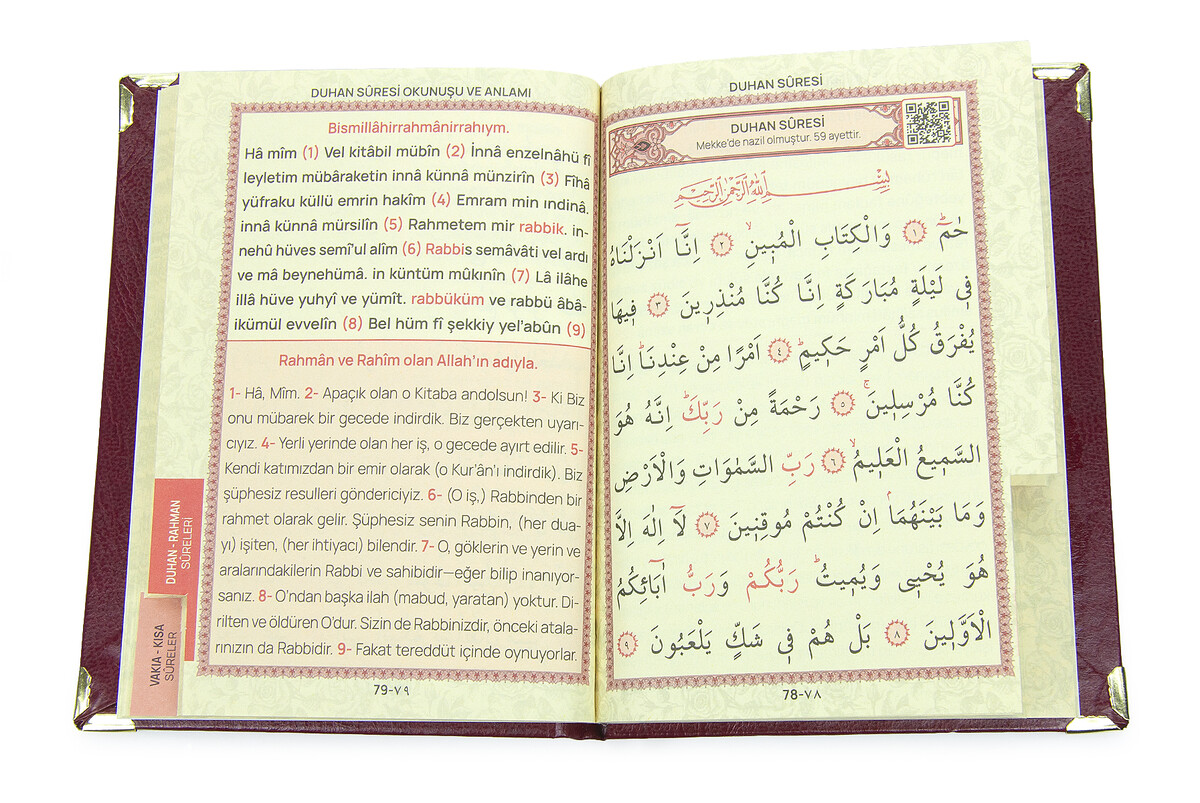 DUHAN SÛRESİ
DUHAN SÛRESİ
Mekke'de nazil olmuştur. 59 ayettir.
بِسْمِ اللّٰهِ الرَّحْمٰنِ الرَّحِيمِ
حٰمٓ ۚ ﴿١﴾ وَالْكِتَابِ الْمُبٖينِ ۙ ﴿٢﴾ اِنَّٓا اَنْزَلْنَاهُ
فٖي لَيْلَةٍ مُبَارَكَةٍ اِنَّا كُنَّا مُنْذِرٖينَ ﴿٣﴾ فٖيهَا
يُفْرَقُ كُلُّ اَمْرٍ حَكٖيمٍ ۙ ﴿٤﴾ اَمْرًا مِنْ عِنْدِنَا ۜ اِنَّا
كُنَّا مُرْسِلٖينَ ۚ ﴿٥﴾ رَحْمَةً مِنْ رَبِّكَ ۜ اِنَّهُ هُوَ
السَّمٖيعُ الْعَلٖيمُ ۙ ﴿٦﴾ رَبِّ السَّمٰوَاتِ وَالْاَرْضِ
وَمَا بَيْنَهُمَا ۢ اِنْ كُنْتُمْ مُوقِنٖينَ ﴿٧﴾ لَٓا اِلٰهَ اِلَّا
هُوَ يُحْيٖي وَيُمٖيتُ ۜ رَبُّكُمْ وَرَبُّ اٰبَٓائِكُمُ
الْاَوَّلٖينَ ﴿٨﴾ بَلْ هُمْ فٖي شَكٍّ يَلْعَبُونَ ﴿٩﴾
78-٧٨
DUHAN SÛRESİ OKUNUŞU VE ANLAMI
Bismillâhirrahmânirrahıym.
Hâ mîm (1) Vel kitâbil mübîn (2) İnnâ enzelnâhü fî
leyletim mübâraketin innâ künnâ münzirîn (3) Fîhâ
yüfraku küllü emrin hakîm (4) Emram min ındinâ.
innâ künnâ mürsilîn (5) Rahmetem mir rabbik. in-
nehû hüves semî'ul alîm (6) Rabbis semâvâti vel ardı
ve mâ beynehümâ. in küntüm mûkınîn (7) Lâ ilâhe
illâ hüve yuhyî ve yümît. rabbüküm ve rabbü âbâ-
ikümül evvelîn (8) Bel hüm fî şekkiy yel'abûn (9)
Rahmân ve Rahîm olan Allah'ın adıyla.
1- Hâ, Mîm. 2- Apaçık olan o Kitaba andolsun! 3- Ki Biz
onu mübarek bir gecede indirdik. Biz gerçekten uyarı-
cıyız. 4- Yerli yerinde olan her iş, o gecede ayırt edilir. 5-
Kendi katımızdan bir emir olarak (o Kur'ân'ı indirdik). Biz
şüphesiz resulleri göndericiyiz. 6- (O iş,) Rabbinden bir
rahmet olarak gelir. Şüphesiz senin Rabbin, (her dua-
yı) işiten, (her ihtiyacı) bilendir. 7- O, göklerin ve yerin ve
aralarındakilerin Rabbi ve sahibidir—eğer bilip inanıyor-
sanız. 8- O'ndan başka ilah (mabud, yaratan) yoktur. Di-
rilten ve öldüren O'dur. Sizin de Rabbinizdir, önceki atala-
rınızın da Rabbidir. 9- Fakat tereddüt içinde oynuyorlar.
79-٧٩
DUHAN - RAHMAN
SÛRELERİ
VAKIA - KISA
SÛRELER